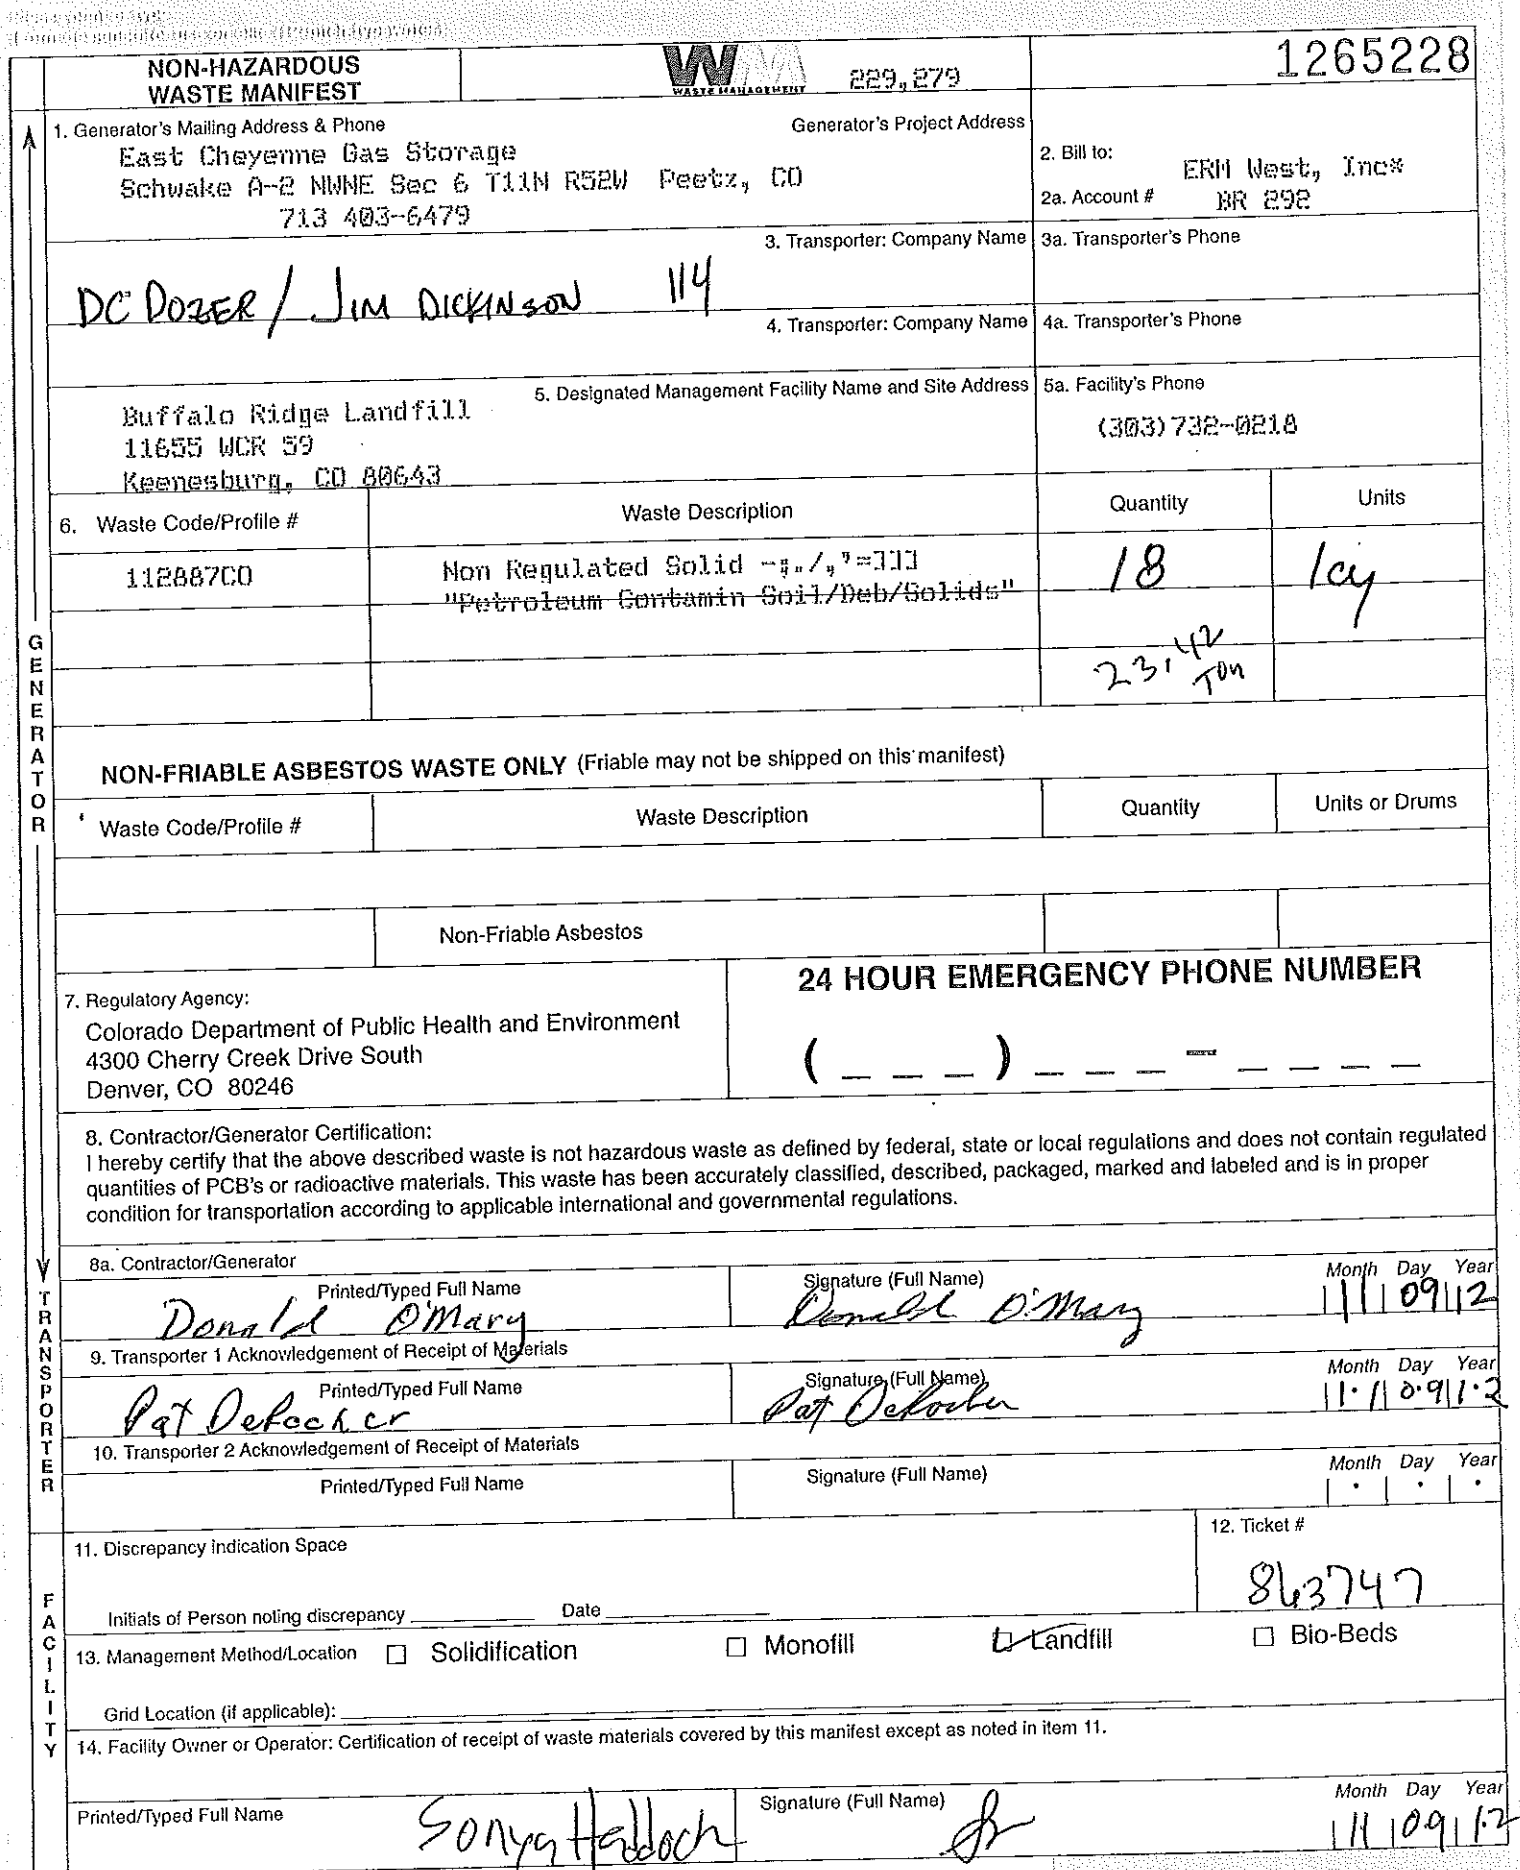 NON-HAZARDOUS
WASTE MANIFEST
WM
WASTE MANAGEMENT
229,279
1265228
1. Generator's Mailing Address & Phone
Generator's Project Address
East Cheyenne Gas Storage
Schwake A-2 NWNE Sec 6 T11N R52W Peetz, CO
713 403-6479
2. Bill to:
ERM West, Inc*
2a. Account #
BR 292
3. Transporter: Company Name
3a. Transporter's Phone
DC DOZER / JIM DICKINSON 114
4. Transporter: Company Name
4a. Transporter's Phone
5. Designated Management Facility Name and Site Address
5a. Facility's Phone
Buffalo Ridge Landfill
11655 WCR 59
Keenesburg, CO 80643
(303)732-0218
6. Waste Code/Profile #
Waste Description
Quantity
Units
112887CO
Non Regulated Solid
"Petroleum Contamin Soil/Deb/Solids"
18
23.42
Ton
NON-FRIABLE ASBESTOS WASTE ONLY (Friable may not be shipped on this manifest)
Waste Code/Profile #
Waste Description
Quantity
Units or Drums
Non-Friable Asbestos
7. Regulatory Agency:
Colorado Department of Public Health and Environment
4300 Cherry Creek Drive South
Denver, CO 80246
24 HOUR EMERGENCY PHONE NUMBER
( _ _ _ ) _ _ _ - _ _ _ _
8. Contractor/Generator Certification:
I hereby certify that the above described waste is not hazardous waste as defined by federal, state or local regulations and does not contain regulated
quantities of PCB's or radioactive materials. This waste has been accurately classified, described, packaged, marked and labeled and is in proper
condition for transportation according to applicable international and governmental regulations.
8a. Contractor/Generator
Printed/Typed Full Name
Signature (Full Name)
Month Day Year
Donald O'Mary
Donald O'Mary
11 09 12
9. Transporter 1 Acknowledgement of Receipt of Materials
Printed/Typed Full Name
Signature (Full Name)
Month Day Year
Pat DeRocher
Pat DeRocher
11 09 12
10. Transporter 2 Acknowledgement of Receipt of Materials
Printed/Typed Full Name
Signature (Full Name)
Month Day Year
11. Discrepancy Indication Space
12. Ticket #
863747
Initials of Person noting discrepancy
Date
13. Management Method/Location
Solidification
Monofill
Landfill
Bio-Beds
Grid Location (if applicable):
14. Facility Owner or Operator: Certification of receipt of waste materials covered by this manifest except as noted in item 11.
Printed/Typed Full Name
Sonya Haddock
Signature (Full Name)
Month Day Year
11 09 12
GENERATOR
TRANSPORTER
FACILITY